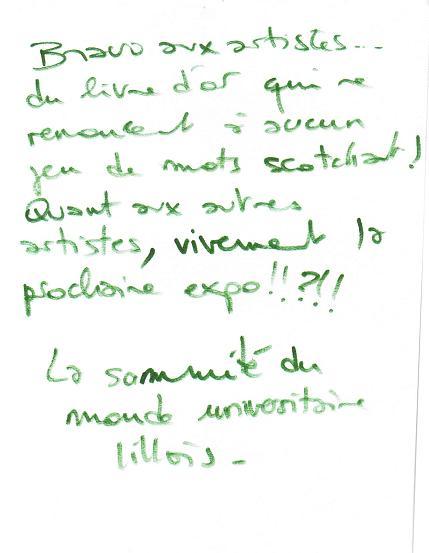 Bravo aux artistes...
du livre d'or qui ne
renoncent à aucun
jeu de mots scotchant!
Quant aux autres
artistes, vivement la
prochaine expo!!?!!
La sommité du
monde universitaire
lillois -